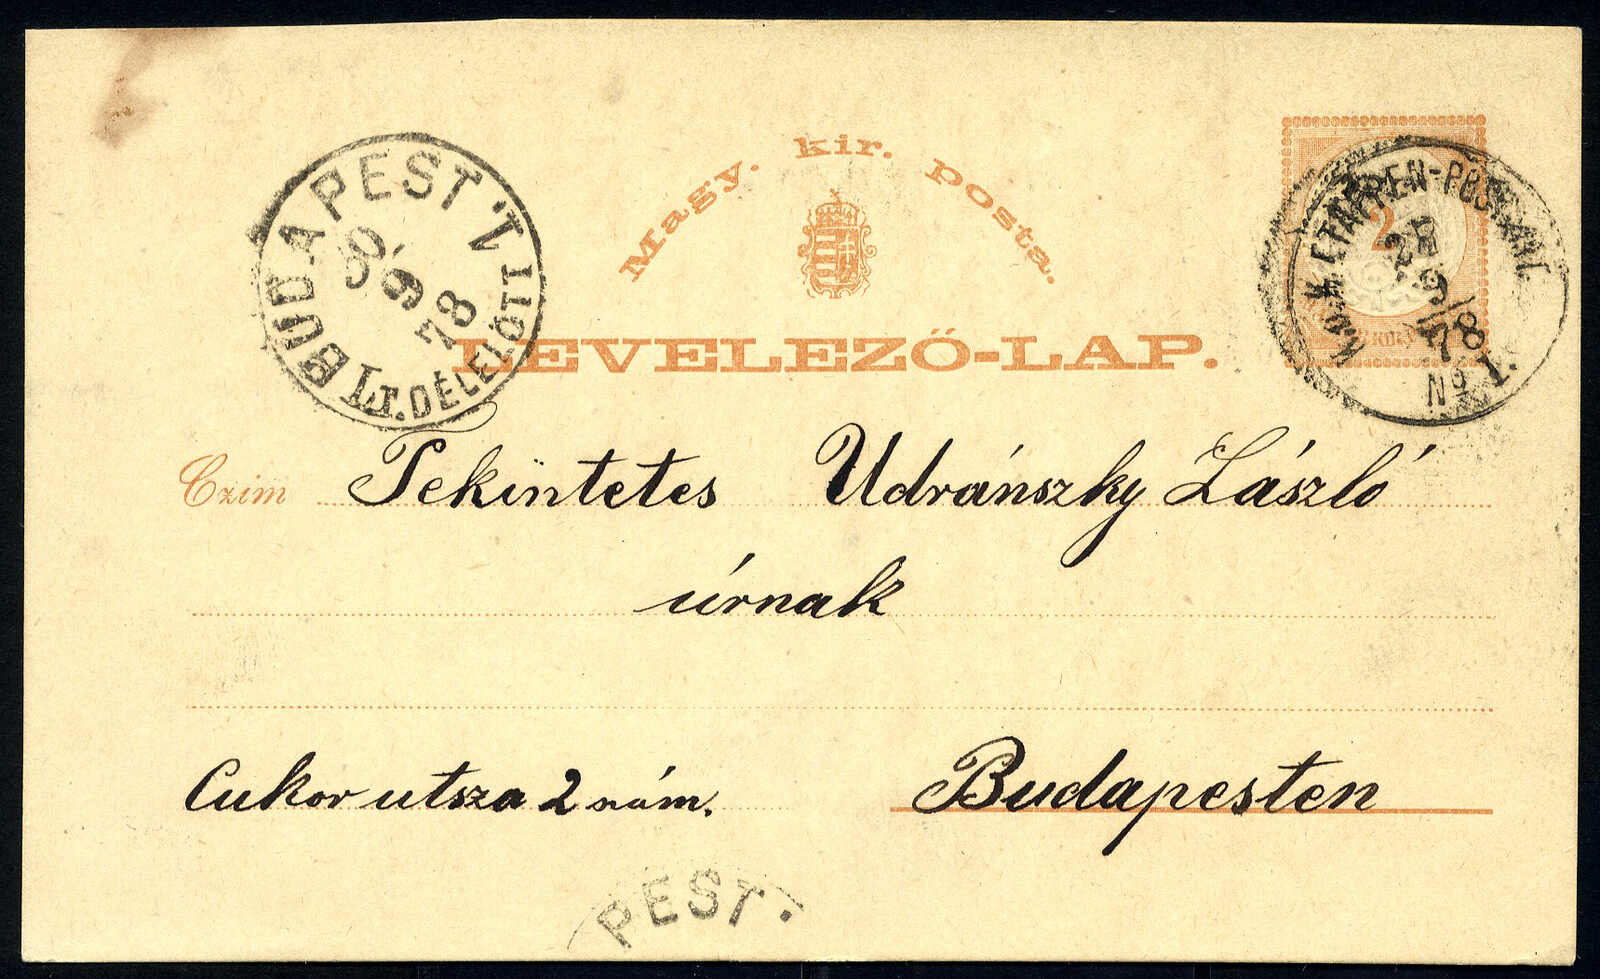 Magy. kir. posta.
LEVELEZŐ-LAP.
BUDAPEST
30
9
78
DÉLELŐTT
K.u.K. ETAPPEN-POSTAMT
9
78
No I.
2
Czim Tekintetes Udránszky László
úrnak
Cukor utsza 2 szám. Budapesten
PEST.